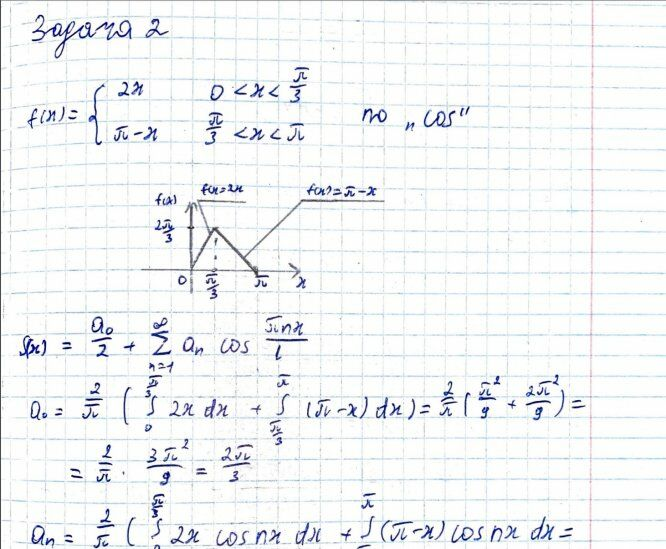 Задача 2
f(x) = { 2x 0 < x < π/3
π-x π/3 < x < π по "cos"
f(x) f(x)=2x f(x)=π-x
2π/3
0 π/3 π x
f(x) = a₀/2 + ∞ Σ n=1 aₙ cos πnx/l
a₀ = 2/π ( ∫₀^{π/3} 2x dx + ∫_{π/3}^{π} (π-x) dx) = 2/π (π²/9 + 2π²/9) =
= 2/π · 3π²/9 = 2π/3
aₙ = 2/π ( ∫^{π/3} 2x cos nx dx + ∫^{π} (π-x) cos nx dx =